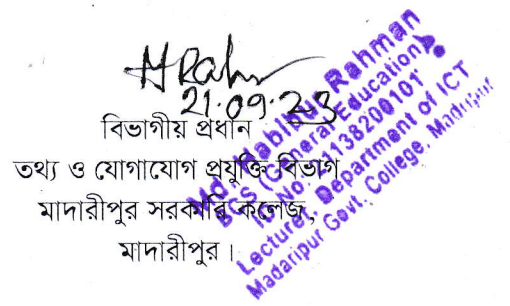 21.09.23
বিভাগীয় প্রধান
তথ্য ও যোগাযোগ প্রযুক্তি বিভাগ
মাদারীপুর সরকারি কলেজ,
মাদারীপুর।
Md. Habibur Rahman
BCS (General Education)
ID No. 24138200101
Lecturer, Department of ICT
Madaripur Govt. College, Madaripur